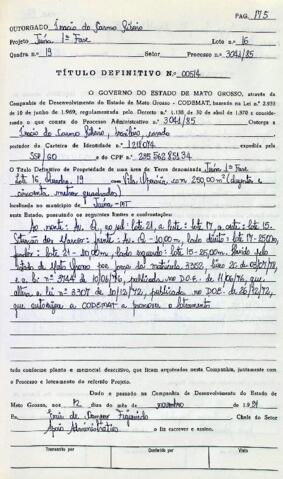 PAG. 175
OUTORGADO Inácio do Carmo Ribeiro
Projeto Juína 1ª Fase Lote n.º 16
Quadra n.º 19 Setor Processo n.º 3041/85
TÍTULO DEFINITIVO N.º 00514
O GOVERNO DO ESTADO DE MATO GROSSO, através da
Companhia de Desenvolvimento do Estado de Mato Grosso - CODEMAT, com base na Lei n.º 2.933
de 10 de junho de 1969, regulamentada pelo Decreto n.º 1.138 de 30 de abril de 1970 e considerando
o que consta do Processo Administrativo n.º 3041/85 Outorga a
Inácio do Carmo Ribeiro, brasileiro,
portador da Carteira de Identidade n.º 1218074 expedida pela
SSP/GO e do CPF n.º 23556285134
O Título Definitivo de Propriedade de uma área de Terra denominada Juína 1ª Fase
Lote 16, Quadra 19 com 250,00 m² (duzentos e
cincoenta metros quadrados)
localizado no município de Juína - MT
neste Estado, possuindo os seguintes limites e confrontações:
Ao norte: Av. Q, ao sul: lote 21, a leste: lote 17, a oeste: lote 15.
frente: Av. Q - 10,00m, lado direito: lote 17 - 25,00m,
fundos: lote 21 - 10,00m, lado esquerdo: lote 15 - 25,00m.
Estado de Mato Grosso matrícula 3352, livro
e a lei n.º 3744 de 10/06/76, publicada no D.O.E. de 11/06/76, que
altera a lei n.º 3307 de 10/12/72, publicada no D.O.E. de 26/12/72,
que autoriza a CODEMAT a promover o loteamento
tudo conforme planta e memorial descritivo, que ficam arquivados nesta Companhia, juntamente com
o Processo e loteamento do referido Projeto.
Dado e passado na Companhia de Desenvolvimento do Estado de
Mato Grosso, aos 12 dias do mês de novembro de 1.991
Eu, Figueiredo Chefe do Setor
Apoio Administrativo o fiz escrever e assino.
Transcrito por Conferido por Visto